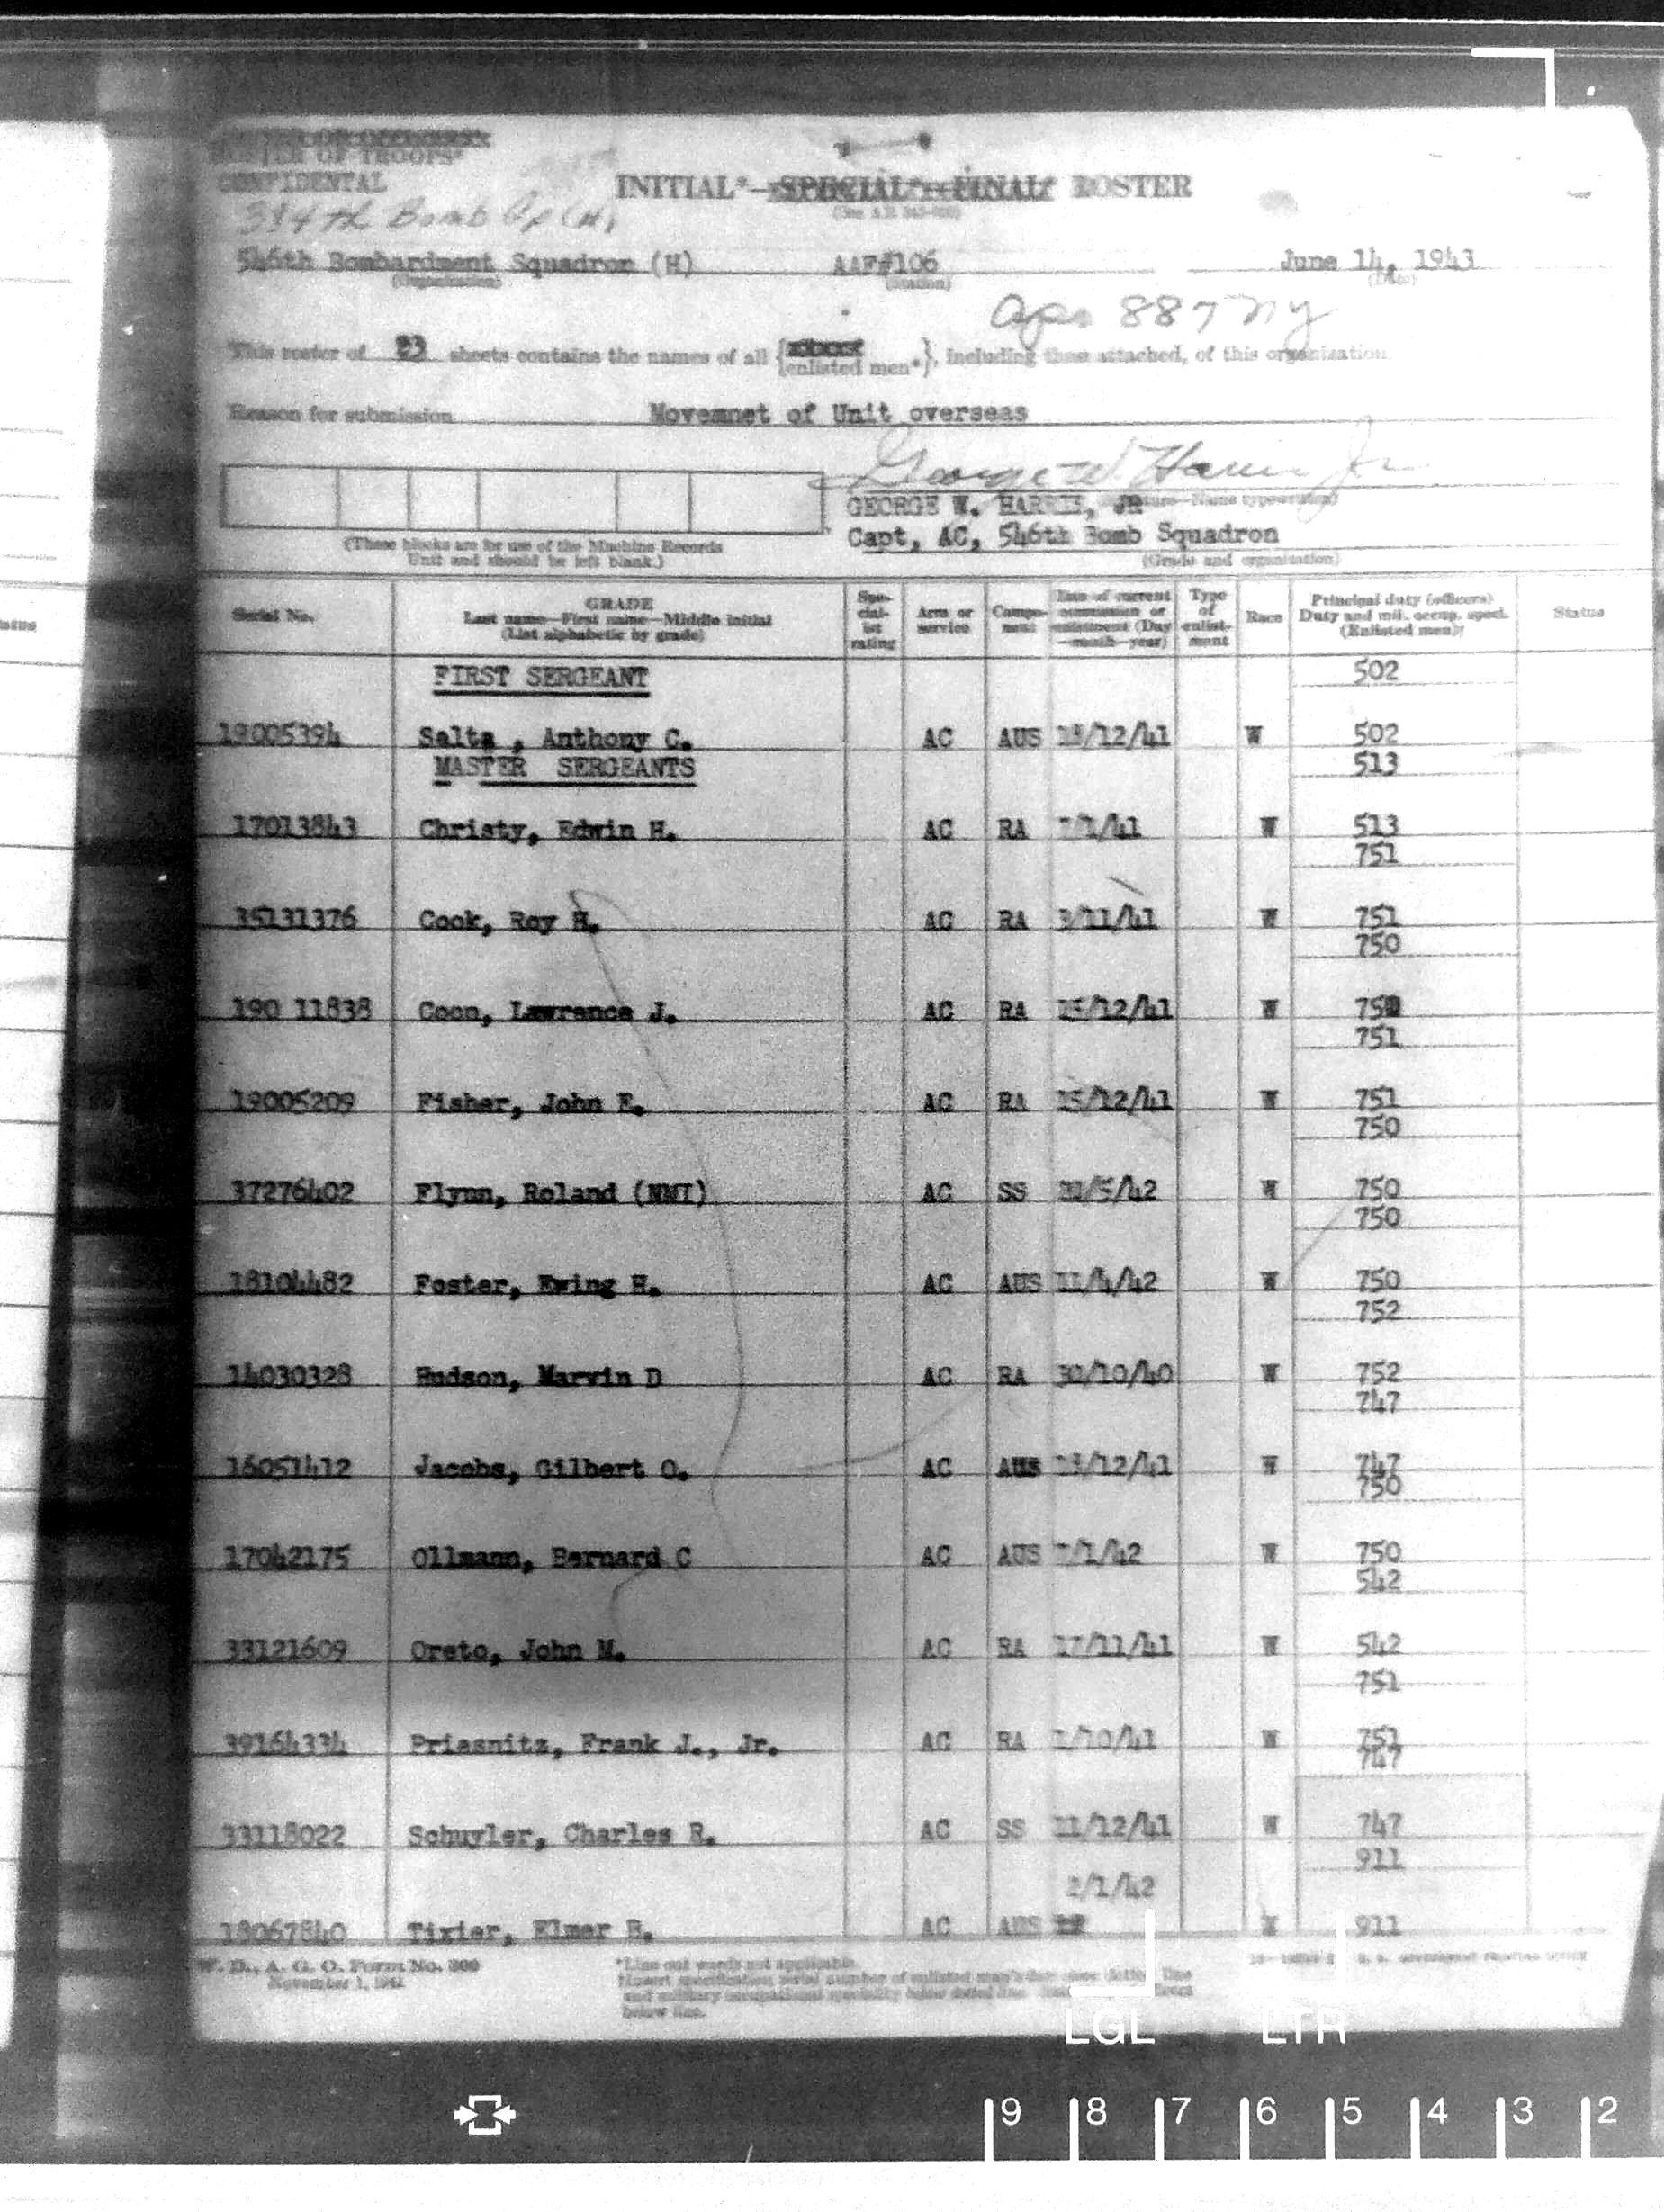 ROSTER OF TROOPS*
CONFIDENTAL
INITIAL*—SPECIAL*—FINAL* ROSTER
384th Bomb Gp (H)
546th Bombardment Squadron (H) AAF#106 June 14, 1943
(Organization) (Station) (Date)
Apo 887 NY
This roster of 23 sheets contains the names of all {enlisted men*}, including those attached, of this organization.
Reason for submission Movemnet of Unit overseas
George W. Harris Jr
GEORGE W. HARRIS, JR
Capt, AC, 546th Bomb Squadron
(These blocks are for use of the Machine Records (Grade and organization)
Unit and should be left blank.)
Serial No. GRADE Last name—First name—Middle initial (List alphabetic by grade) Spe-cial-ist rating Arm or service Compo-nent Date of current commission or enlistment (Day—month—year) Type of enlist-ment Race Principal duty (officers) Duty and mil. occup. specl. (Enlisted men)† Status
FIRST SERGEANT 502
19005394 Salta , Anthony C. AC AUS /12/41 W 502
MASTER SERGEANTS 513
17013843 Christy, Edwin H. AC RA /1/41 W 513
751
35131376 Cook, Roy H. AC RA 3/11/41 W 751
750
190 11838 Coon, Lawrence J. AC RA 15/12/41 W 750
751
19005209 Fisher, John E. AC RA 15/12/41 W 751
750
37276402 Flynn, Roland (NMI) AC SS /5/42 W 750
750
18104482 Foster, Ewing H. AC AUS 11/4/42 W 750
752
14030328 Hudson, Marvin D AC RA 30/10/40 W 752
747
16051412 Jacobs, Gilbert O. AC AUS 13/12/41 W 747
750
17042175 Ollmann, Bernard C AC AUS /1/42 W 750
542
33121609 Oreto, John M. AC RA 17/11/41 W 542
751
39164334 Priesnitz, Frank J., Jr. AC RA 1/10/41 W 751
747
33118022 Schuyler, Charles R. AC SS 11/12/41 W 747
911
2/1/42
18067840 Tixier, Elmer B. AC AUS W 911
W. D., A. G. O. Form No. 300 *Line out words not applicable.
November 1, 1942
below line.
LGL LTR
9 8 7 6 5 4 3 2